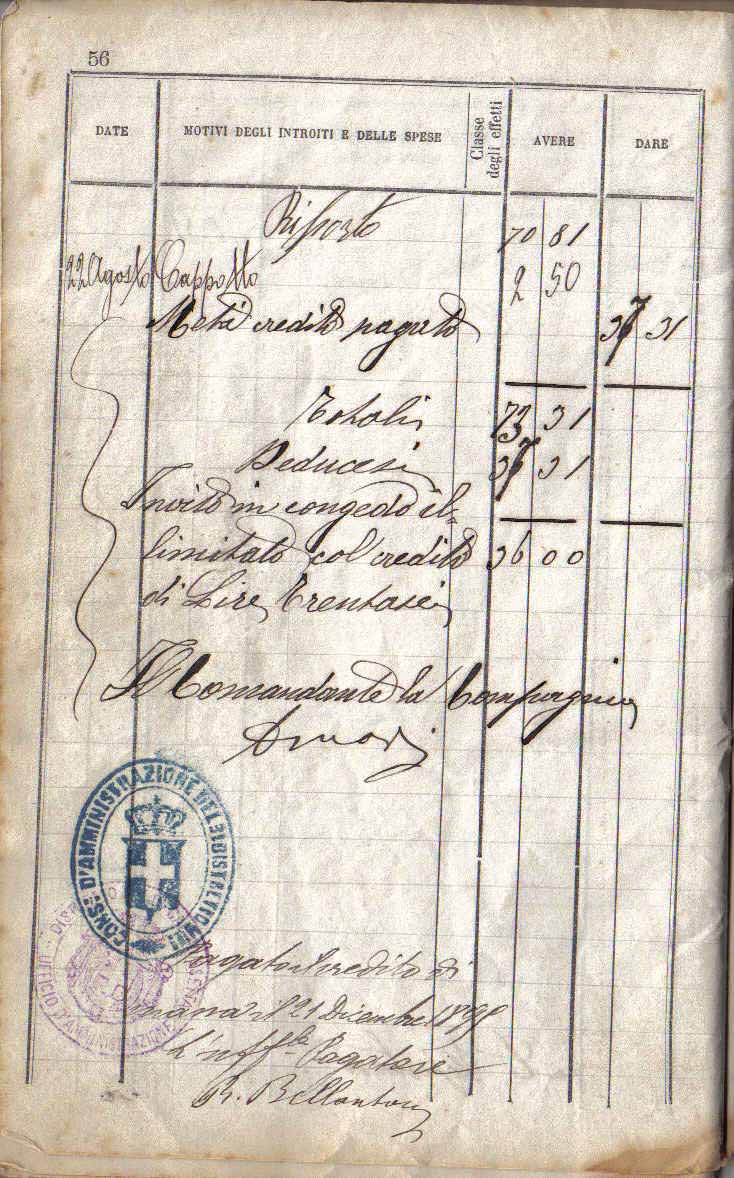 56
DATE MOTIVI DEGLI INTROITI E DELLE SPESE Classe degli effetti AVERE DARE
Riporto 70 81
22 Agosto Cappotto 2 50
Metà credito pagato 37 31
Totali 73 31
Deducesi 37 31
Inviato in congedo il=
limitato col credito 36 00
di Lire trentasei
Il Comandante la Compagnia
CONS. D'AMMINISTRAZIONE DEL
UFFICIO D'AMMINISTRAZIONE
Pagato il credito di
il 21 Dicembre
L'uff.le Pagatore